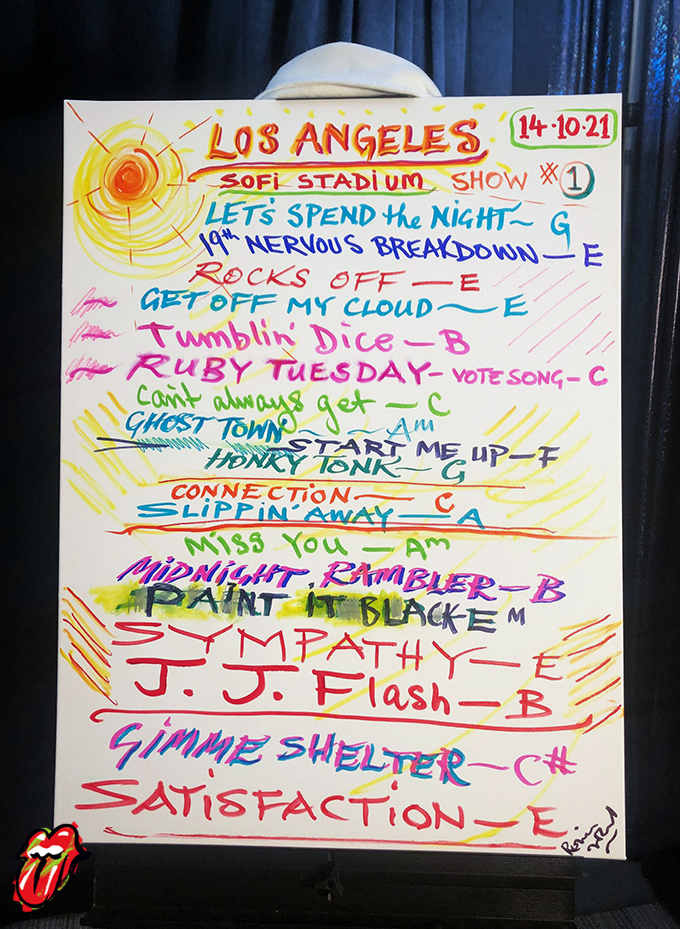 LOS ANGELES 14-10-21
SOFI STADIUM SHOW #1
LET'S SPEND the NIGHT~ G
19th NERVOUS BREAKDOWN — E
ROCKS OFF — E
GET OFF MY CLOUD — E
Tumblin' Dice — B
RUBY TUESDAY - VOTE SONG - C
Can't always get — C
GHOST TOWN ~ Am
START ME UP — F
HONKY TONK — G
CONNECTION — C
SLIPPIN' AWAY — A
MISS YOU — Am
MIDNIGHT RAMBLER — B
PAINT iT BLACK — EM
SYMPATHY — E
J. J. Flash — B
GIMME SHELTER — C#
SATiSFACTION — E